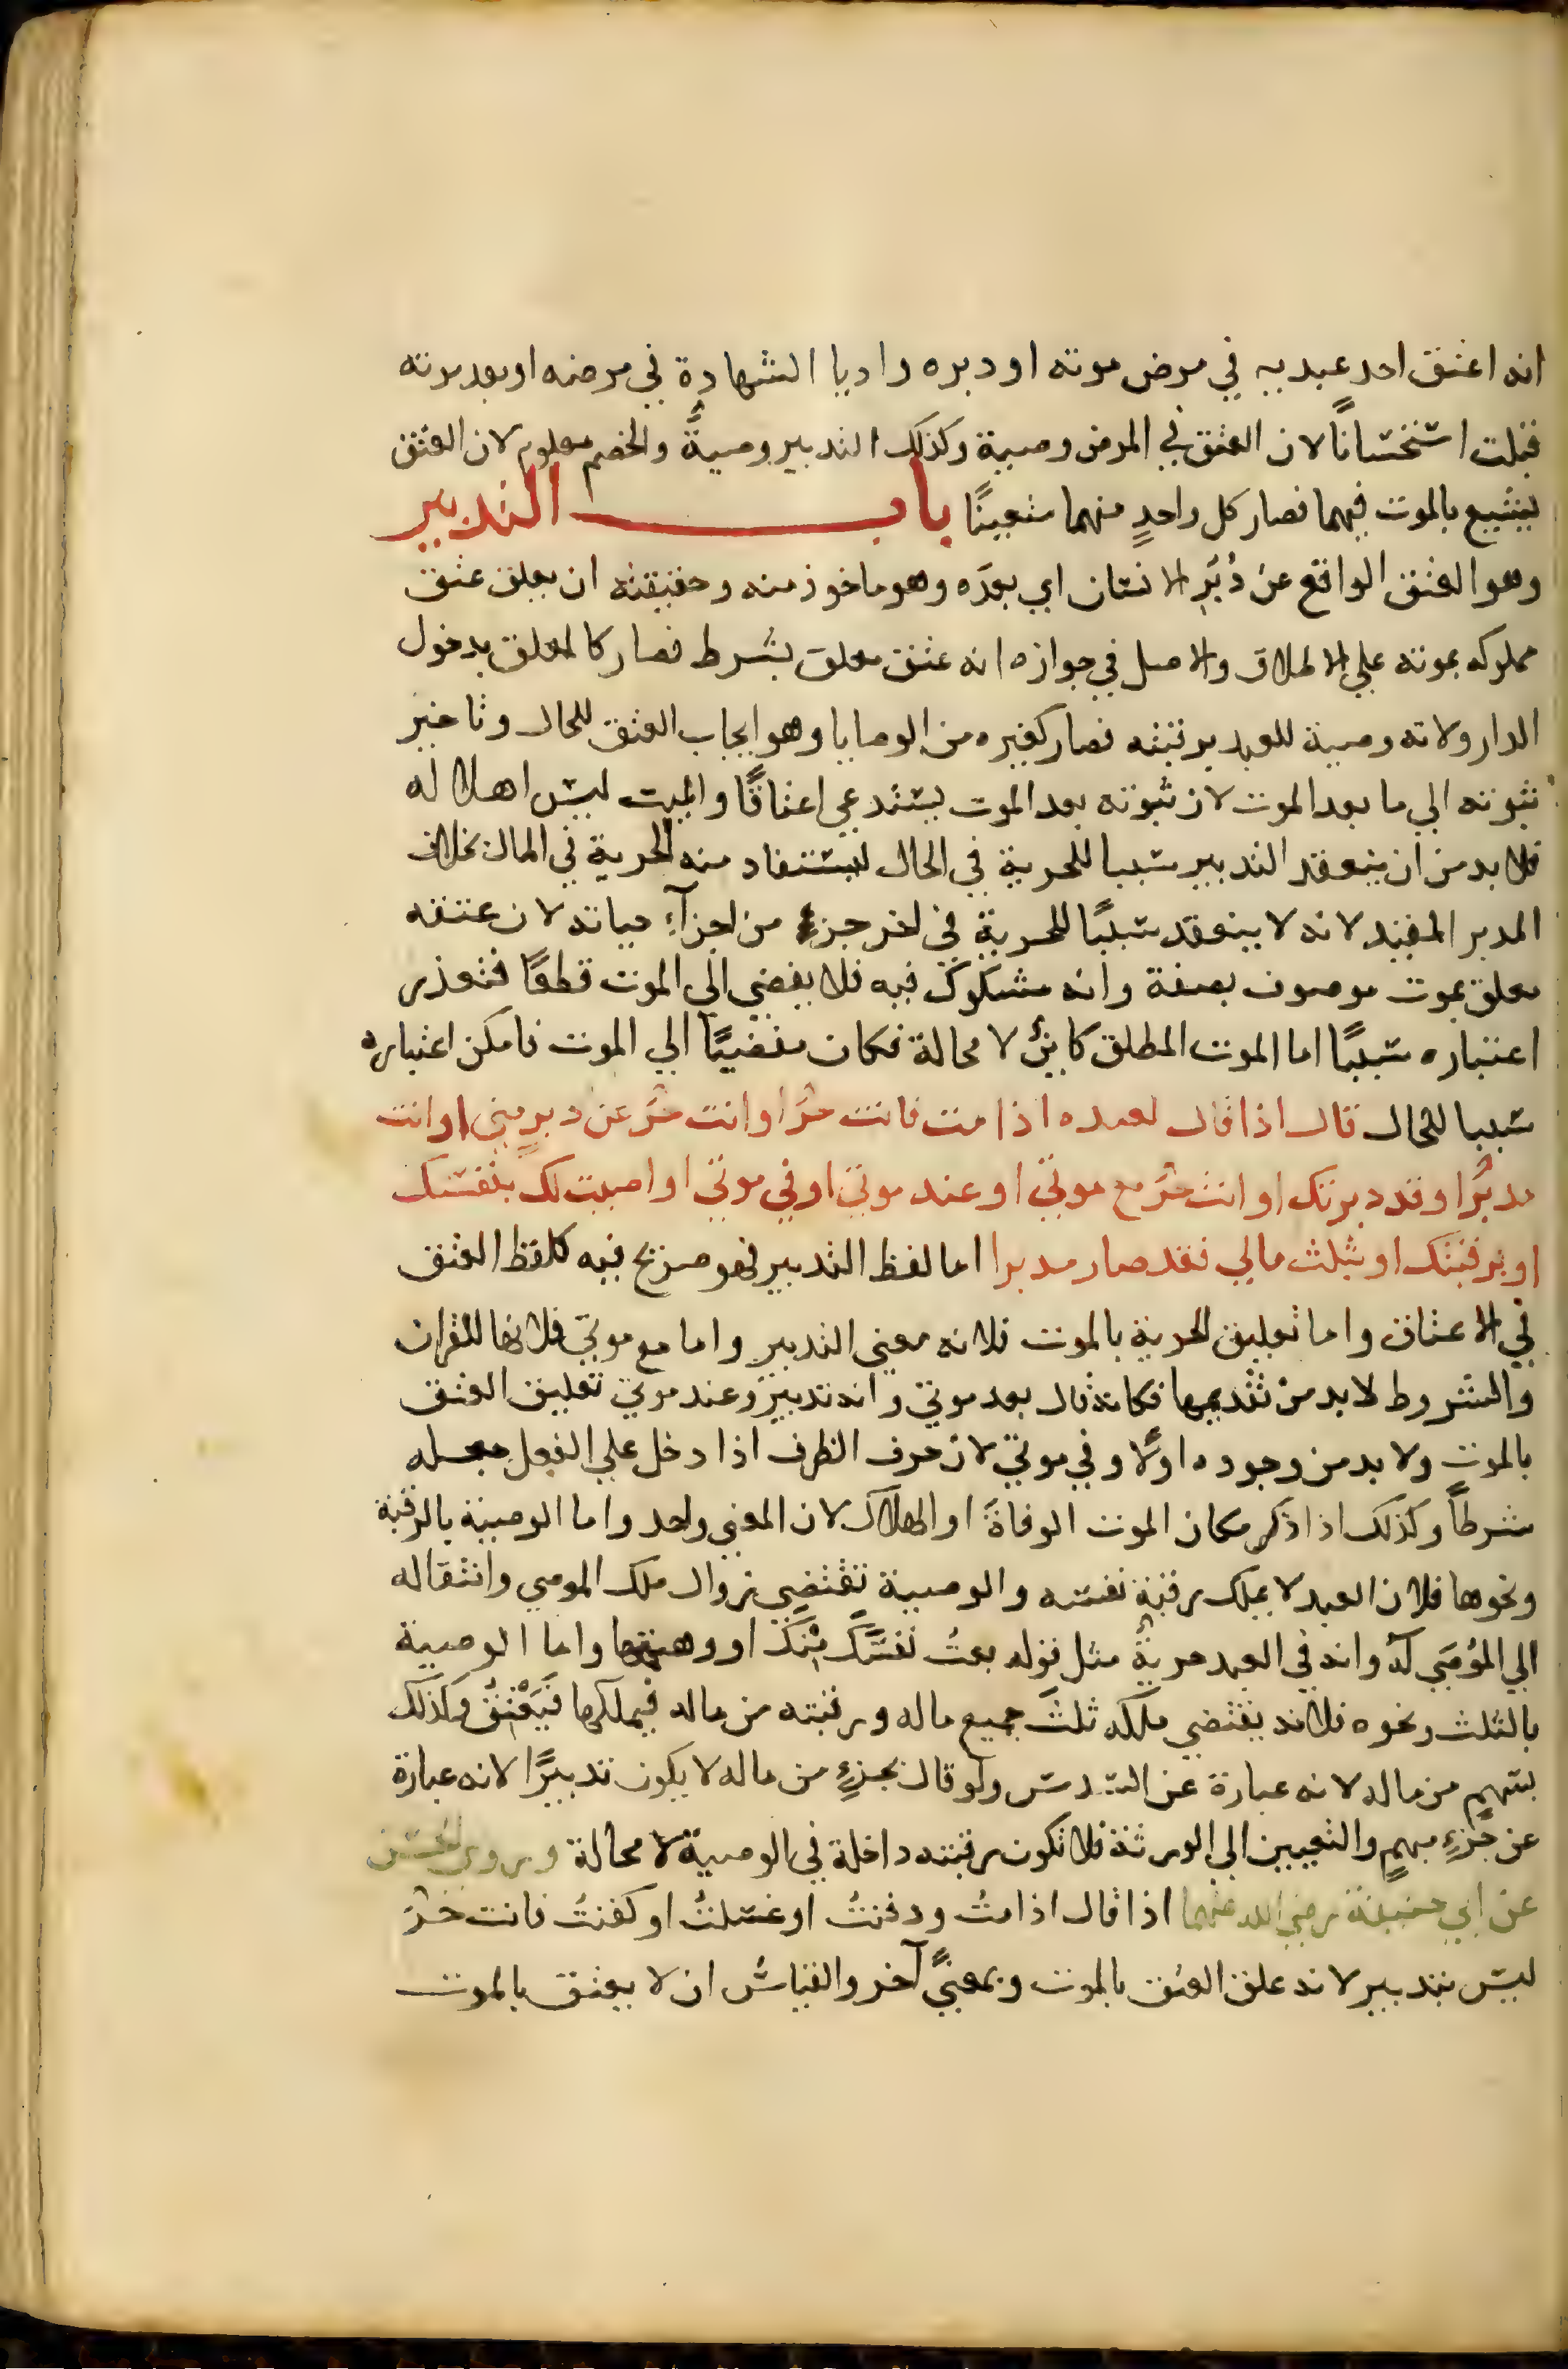 انه اعتق احد عبديه في مرض موته او دبره واديا الشهادة في مرضه او بعد موته
قبلت استحسانًا لان العتق في المرض وصية وكذلك التدبير وصيةً والخصم معلوم لان العتق
يشيع بالموت فيهما فصار كل واحدٍ منهما متعينًا باب التدبير
وهو العتق الواقع عن دُبُرِ الانسان اي بعدَه وهو ماخوذ منه وحقيقته ان يعلق عتق
مملوكه بموته علي الاطلاق والاصل في جوازه انه عتق معلق بشرط فصار كالمعلق بدخول
الدار ولانه وصية للعبد برقبته فصار كغيره من الوصايا وهو ايجاب العتق للحال وتاخير
ثبوته الي ما بعد الموت لان ثبوته بعد الموت يستدعي اعتاقًا والميت ليس اهلا له
فلا بد من ان ينعقد التدبير سببا للحرية في الحال ليستفاد منه الحرية في المال بخلاف
المدبر المقيد لانه لا ينعقد سببًا للحرية في اخر جزءٍ من اجزآءِ حياته لان عتقه
معلق بموت موصوف بصفة وانه مشكوك فيه فلا يفضي الي الموت قطعًا فتعذر
اعتباره سببًا اما الموت المطلق كائنٌ لا محالة فكان مفضيًا الي الموت فامكن اعتباره
سببا للحال قال اذا قال لعبده اذا مت فانت حرٌ او انت حرٌ عن دبرٍ مني او انت
مدبرٌ او قد دبرتك او انت حرٌ مع موتي او عند موتي او في موتي او اوصيت لك بنفسك
او برقبتك او بثلث مالي فقد صار مدبرا اما لفظ التدبير فهو صريح فيه كلفظ العتق
في الاعتاق واما تعليق الحرية بالموت فلانه معني التدبير واما مع موتي فلانها للقران
والشروط لا بد من تقديمها فكانه قال بعد موتي وانه تدبيرٌ وعند موتي تعليق العتق
بالموت ولا بد من وجوده اولًا وفي موتي لان حرف الظرف اذا دخل علي الفعل جعله
شرطاً وكذلك اذا ذكر مكان الموت الوفاةَ او الهلاك لان المعني واحد واما الوصية بالرقبة
ونحوها فلان العبد لا يملك رقبة نفسه والوصية تقتضي زوال ملك الموصي وانتقاله
الي المُوصَي له وانه في العبد حريةٌ مثل قوله بعتُ نفسَكَ مِنْكَ او وهبتها واما الوصية
بالثلث ونحوه فلانه يقتضي ملكه ثلثَ جميع ماله ورقبته من ماله فيملكها فَيَعْتِقُ وكذلك
بسهمٍ من ماله لانه عبارة عن السدس ولو قال بجزءٍ من ماله لا يكون تدبيرًا لانه عبارة
عن جُزءٍ مبهمٍ والتعيين الي الورثة فلا تكون رقبته داخلة في الوصية لا محالة وروي الحسن
عن ابي حنيفة رضي الله عنهما اذا قال اذا متُ ودفنتُ او غسلتُ او كفنتُ فانت حرٌ
ليس بتدبير لانه علق العتق بالموت وبمعنيً آخر والقياسُ ان لا يعتق بالموت